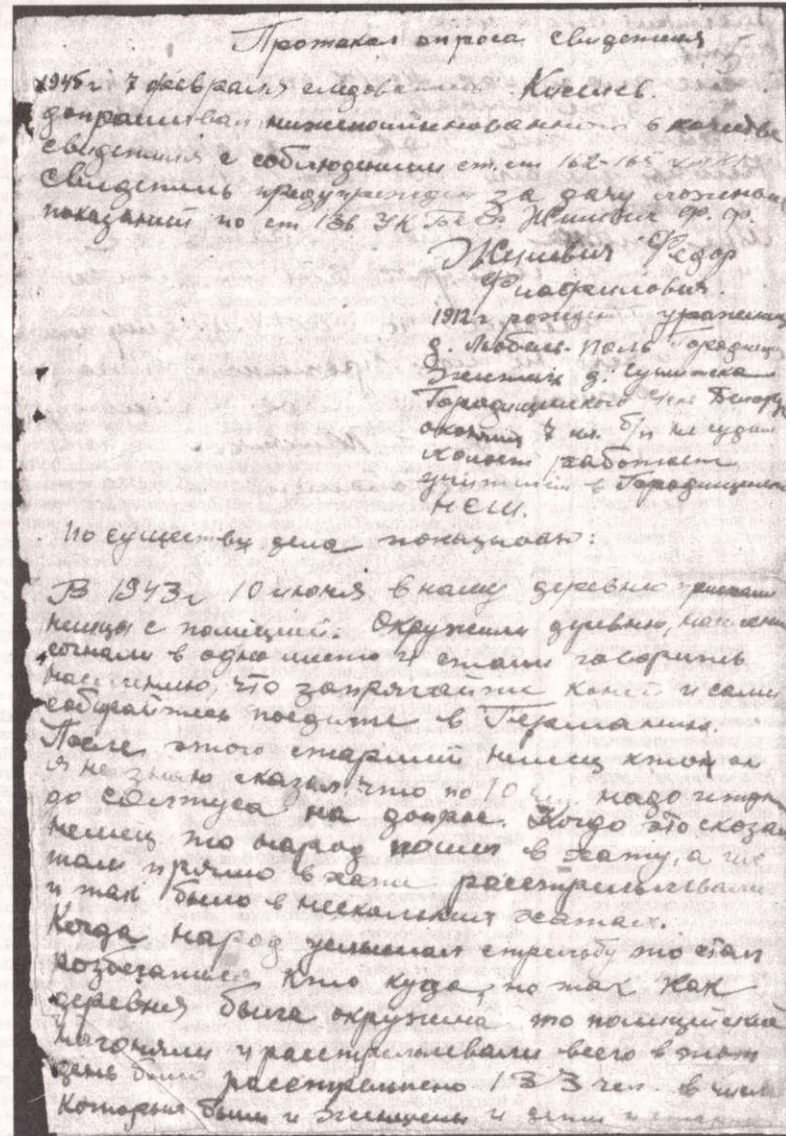 Протакол опроса свидетеля
1945 г 7 февраля следователь Киселев.
допрашивал нижепоименнованного в качестве
свидетеля с соблюдением ст. ст 162-165
Свидетель предупрежден за дачу ложных
показаний по ст 136 УК Жилевич Ф. Ф.
Жилевич Федор
1912 г. рождения уроженец
д. Поль
д.
Городищенского
окончил 7 кл. б/п не судим
холост работает
учителем в
НСШ.
По существу дела показываю:
В 1943 г 10 июля в нашу деревню приехали
немцы с полицией. Окружили деревню,
согнали в одно место и стали говорить
населению, что запрягайте коней и сами
собирайтесь поедите в Германию.
После этого старший немец кто он
я не знаю сказал, что по 10 чел. надо
до солтуса на допрос. Когда это сказал
немец то народ пошел в хату, а
там прямо в хате расстреливали
и так было в нескольких хатах.
Когда народ услышал стрельбу то стал
розбегатися кто куда, но так как
деревня была окружена то полицейские
нагоняли и расстреливали всего в этот
день было расстреляно 133 чел. в числе
которых были и женщины и дети и